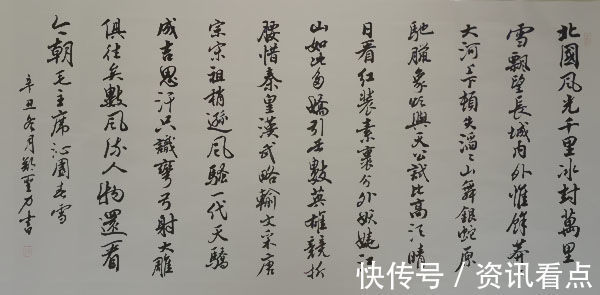 北國風光千里冰封萬里
雪飄望長城内外惟餘莽
大河上下頓失滔〻山舞銀蛇原
馳臘象欲與天公試比高須晴
日看红装素裹分外妖嬈江
山如此多嬌引無數英雄競折
腰惜秦皇漢武略輸文采唐
宗宋祖稍遜風騷一代天驕
成吉思汗只識彎弓射大雕
俱往矣數風流人物還看
今朝毛主席沁園春雪
辛丑冬月鄭力書
快传号 / 资讯看点